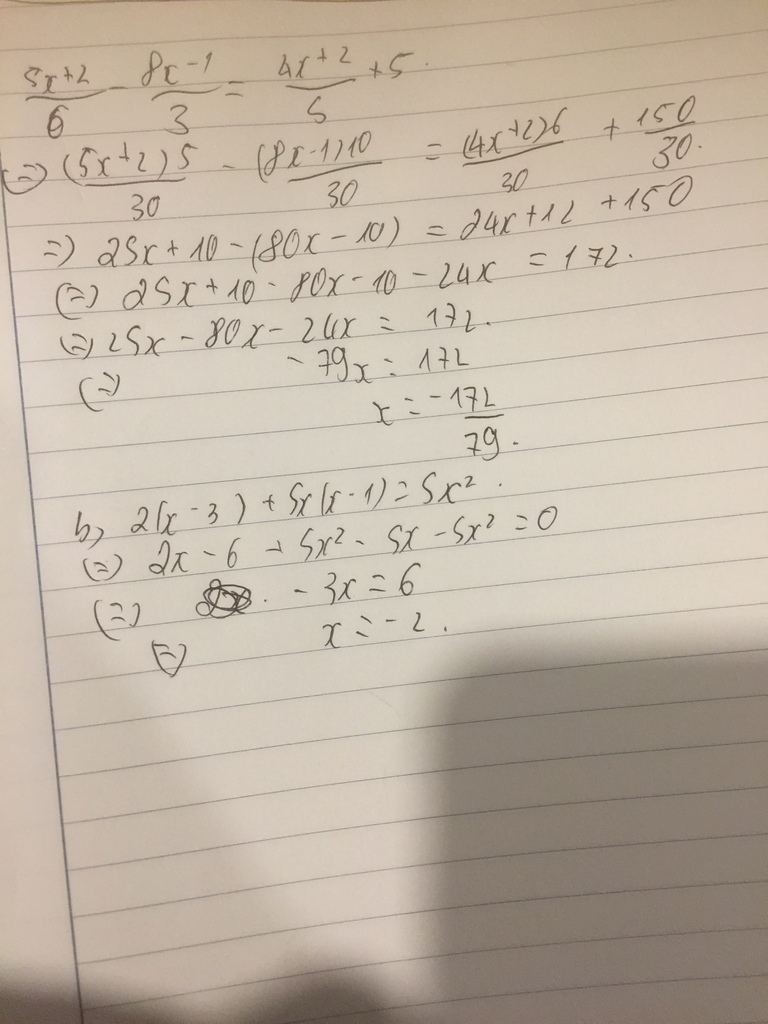 (5x+2)/6 - (8x-1)/3 = (4x+2)/5 + 5.
(=) (5x+2)5/30 - (8x-1)10/30 = (4x+2)6/30 + 150/30.
=) 25x + 10 - (80x - 10) = 24x + 12 + 150
(=) 25x + 10 - 80x - 10 - 24x = 172.
(=) 25x - 80x - 24x = 172.
(=) - 79x = 172
x = -172/79.
b, 2(x - 3) + 5x(x - 1) = 5x².
(=) 2x - 6 + 5x² - 5x - 5x² = 0
(=) - 3x = 6
(=) x = -2.